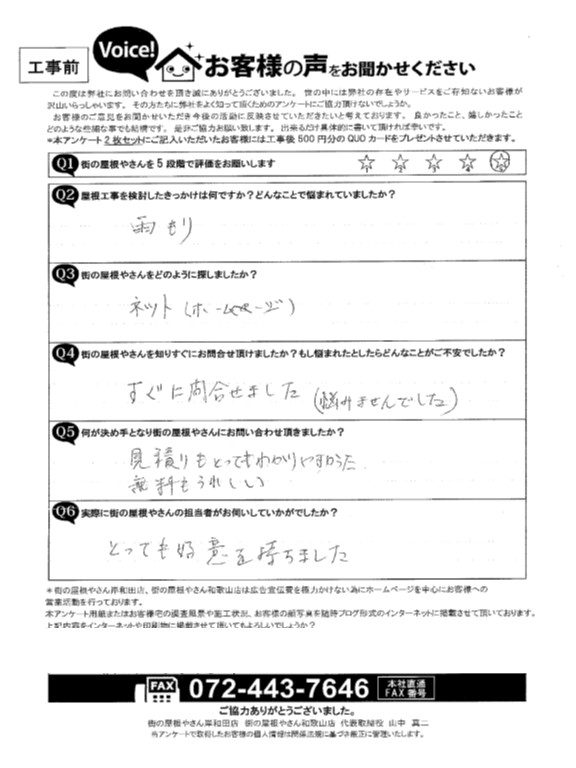 工事前
Voice!
お客様の声をお聞かせください
この度は弊社にお問い合わせを頂き誠にありがとうございました。 世の中には弊社の存在やサービスをご存知ないお客様が
沢山いらっしゃいます。 その方たちに弊社をよく知って頂くためのアンケートにご協力頂けないでしょうか。
お客様のご意見をお聞かせいただき今後の活動に反映させていきたいと考えております。 良かったこと、嬉しかったこと
どのような些細な事でも結構です。 是非ご協力お願い致します。 出来るだけ具体的に書いて頂ければ幸いです。
*本アンケート2枚セットにご記入いただいたお客様には工事後500円分のQUOカードをプレゼントさせていただきます。
Q1 街の屋根やさんを5段階で評価をお願いします
1 2 3 4 5
Q2 屋根工事を検討したきっかけは何ですか？どんなことで悩まれていましたか？
雨もり
Q3 街の屋根やさんをどのように探しましたか？
ネット(ホームページ)
Q4 街の屋根やさんを知りすぐにお問合せ頂けましたか？もし悩まれたとしたらどんなことがご不安でしたか？
すぐに問合せました (悩みませんでした)
Q5 何が決め手となり街の屋根やさんにお問い合わせ頂きましたか？
見積りもとってもわかりやすかった
無料もうれしい
Q6 実際に街の屋根やさんの担当者がお伺いしていかがでしたか？
とっても好意を持ちました
*街の屋根やさん岸和田店、街の屋根やさん和歌山店は広告宣伝費を極力かけない為にホームページを中心にお客様への
営業活動を行っております。
本アンケート用紙またはお客様宅の調査風景や施工状況、お客様の顔写真を随時ブログ形式のインターネットに掲載させて頂いております。
上記内容をインターネットや印刷物に掲載させて頂いてもよろしいでしょうか？
FAX 072-443-7646 本社直通
FAX番号
ご協力ありがとうございました。
街の屋根やさん岸和田店 街の屋根やさん和歌山店 代表取締役 山中 真二
当アンケートで取得したお客様の個人情報は関係法規に基づき厳正に管理いたします。